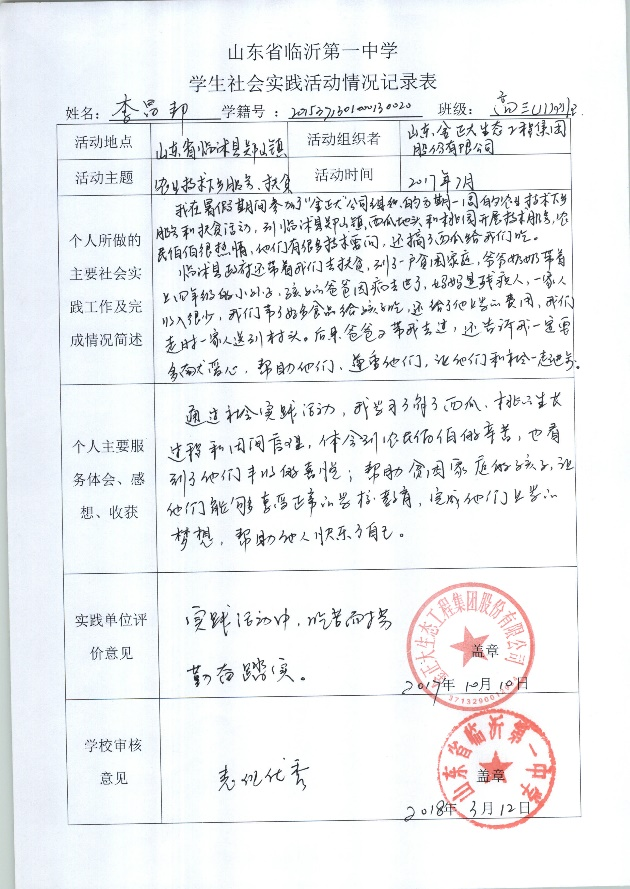 山东省临沂第一中学
学生社会实践活动情况记录表
姓名：李昂邦 学籍号： 班级：高三
活动地点 山东省临沭县郑山镇 活动组织者 山东金正大生态工程集团股份有限公司
活动主题 农业技术下乡服务、扶贫 活动时间 2017年7月
个人所做的
主要社会实
践工作及完
成情况简述
我在暑假期间参加了"金正大"公司组织的为期一周的农业技术下乡
服务和扶贫活动，到临沭县郑山镇西瓜地头和桃园开展技术服务，农
民伯伯很热情，他们有很多技术要问，还摘了西瓜给我们吃。
临沭县政府还带着我们去扶贫，到了一户贫困家庭，爷爷奶奶带着
上四年级的小孙子，孩子的爸爸因病去世了，妈妈是残疾人，一家人
收入很少，我们带了好多食品给孩子吃，还给了他上学的费用，我们
走时一家人送到村头。后来爸爸又带我去过，还告诉我一定要
多献爱心，帮助他们、尊重他们，让他们和社会一起进步。
个人主要服
务体会、感
想、收获
通过社会实践活动，我学习了解了西瓜、桃的生长
过程和田间管理，体会到农民伯伯的辛苦，也看
到了他们丰收的喜悦；帮助贫困家庭的孩子，让
他们能够享受正常的学校教育，完成他们上学的
梦想，帮助他人快乐了自己。
实践单位评
价意见
实践活动中，吃苦耐劳
勤奋踏实。
金正大生态工程集团股份有限公司
盖章
2017年10月10日
学校审核
意见
表现优秀
山东省临沂第一中学
盖章
2018年3月12日